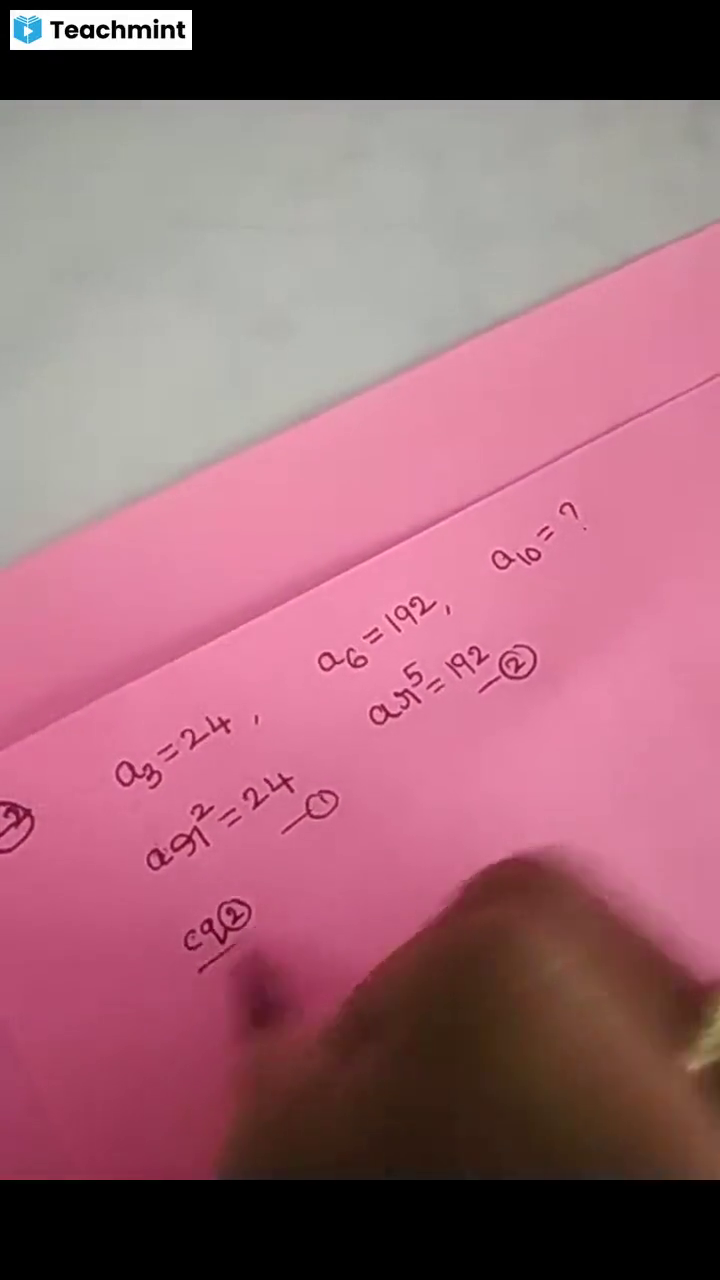 Teachmint
a₃=24, a₆=192, a₁₀=?
ar²=24 —① ar⁵=192 —②
eq②